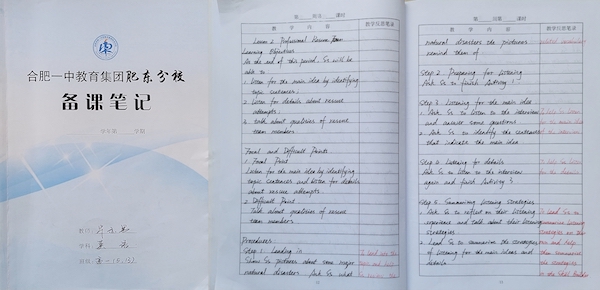 合肥一中教育集团肥东分校
备课笔记
学年第 学期
教师
学科 英语
班级 高一
第 周第 课时
教 学 内 容 教学反思笔录
Lesson 2 Professional Rescue Team
Learning Objectives
At the end of this period, Ss will be
able to
1. listen for the main idea by identifying
topic sentences.
2. listen for details about rescue
attempts.
3. talk about qualities of rescue
team members.
Focal and Difficult Points
1. Focal Point
Listen for the main idea by identifying
topic sentences and listen for details
about rescue attempts.
2. Difficult Point
Talk about qualities of rescue
team members.
Procedures
Step 1 Leading in
Show Ss pictures about some major
natural disasters. Ask Ss what
第 周第 课时
教 学 内 容 教学反思笔录
natural disasters the pictures
remind them of.
Step 2 Preparing for listening
Ask Ss to finish Activity 1.
Step 3 Listening for the main idea
1. Ask Ss to listen to the interview
and answer some questions.
2. Ask Ss to identify the sentences
that indicate the main idea.
Step 4 Listening for details
Ask Ss to listen to the interview
again and finish Activity 3.
Step 5 Summarizing listening strategies
1. Ask Ss to reflect on their listening
experience and talk about their listening
strategies.
2. Lead Ss to summarize the strategies
of listening for the main ideas and
details.
To lead Ss to
summarize listening
strategies
and help
them summarize
the strategies
in the Skill Builder